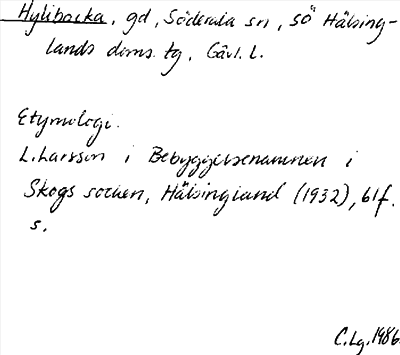 Hylibacka, gd, Söderala sn, SÖ Hälsing-
lands doms. tg, Gävl. L.
Etymologi.
L. Larsson i Bebyggelsenamnen i
Skogs socken, Hälsingland (1932), 61f.
s.
C. Lg. 1986.